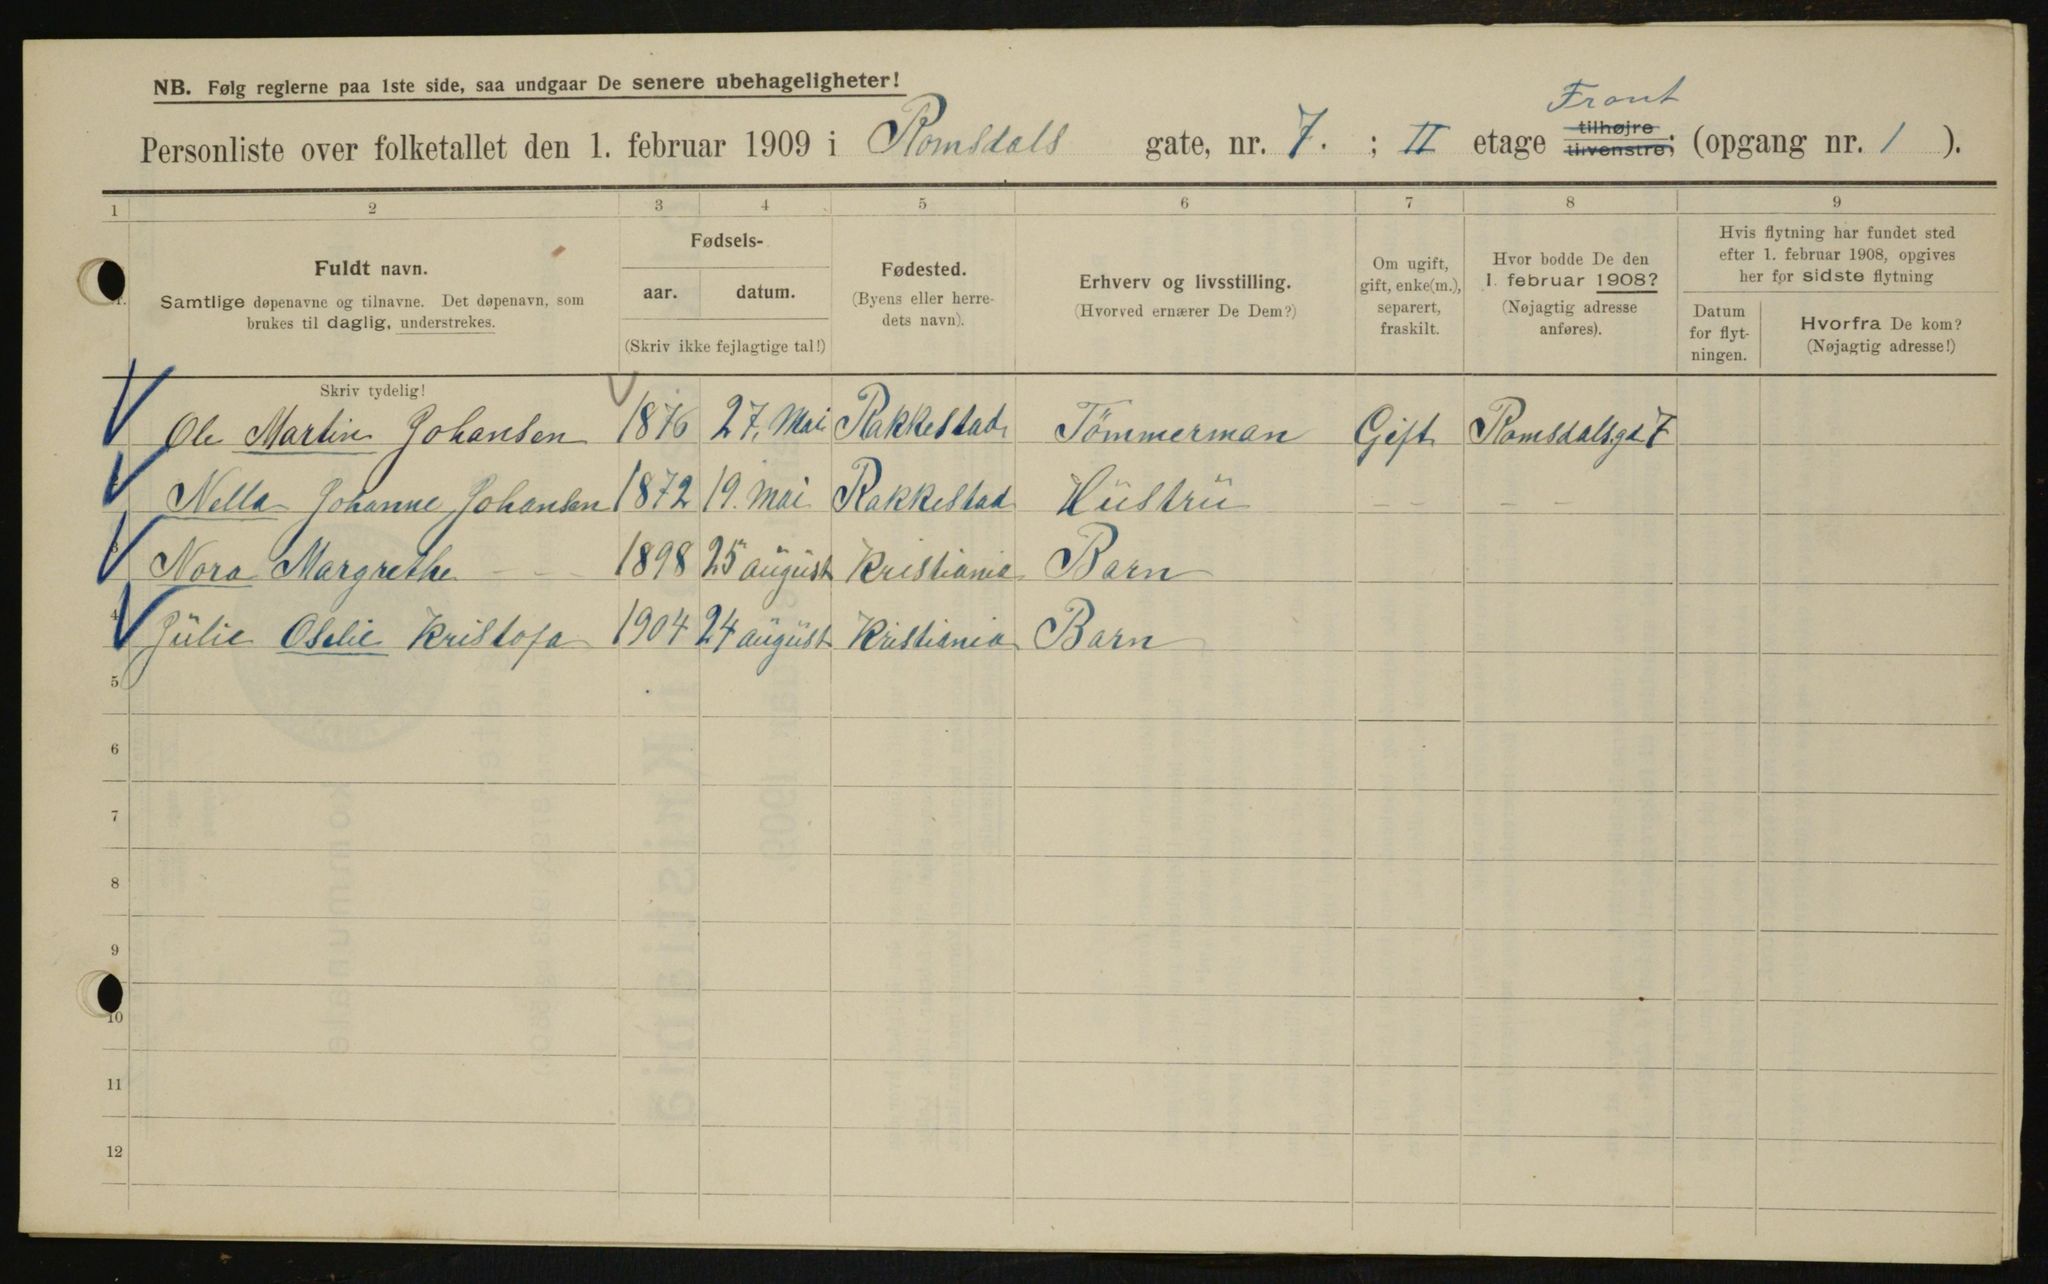 NB. Følg reglerne paa 1ste side, saa undgaar De senere ubehageligheter!
Front
Personliste over folketallet den 1. februar 1909 i Romsdals gate, nr. 7. ; II etage tilhøjre tilvenstre; (opgang nr. 1 ).
1 2 3 4 5 6 7 8 9
Fuldt navn.
Samtlige døpenavne og tilnavne. Det døpenavn, som
brukes til daglig, understrekes.
Fødsels-
aar. datum.
(Skriv ikke fejlagtige tal!)
Fødested.
(Byens eller herre-
dets navn).
Erhverv og livsstilling.
(Hvorved ernærer De Dem?)
Om ugift,
gift, enke(m.),
separert,
fraskilt.
Hvor bodde De den
1. februar 1908?
(Nøjagtig adresse
anføres).
Hvis flytning har fundet sted
efter 1. februar 1908, opgives
her for sidste flytning
Datum
for flyt-
ningen.
Hvorfra De kom?
(Nøjagtig adresse!)
Skriv tydelig!
Ole Martin Johansen 1876 27. Mai Rakkestad Tömmerman Gift Romsdalsgd 7
Nella Johanne Johansen 1872 19. Mai Rakkestad Hüstrü - - - -
3 Nora Margrethe - - - 1898 25 aügüst Kristiania Barn
4 Jülie Oselie Kristofa 1904 24 aügüst Kristiania Barn
5
6
7
8
9
10
11
12